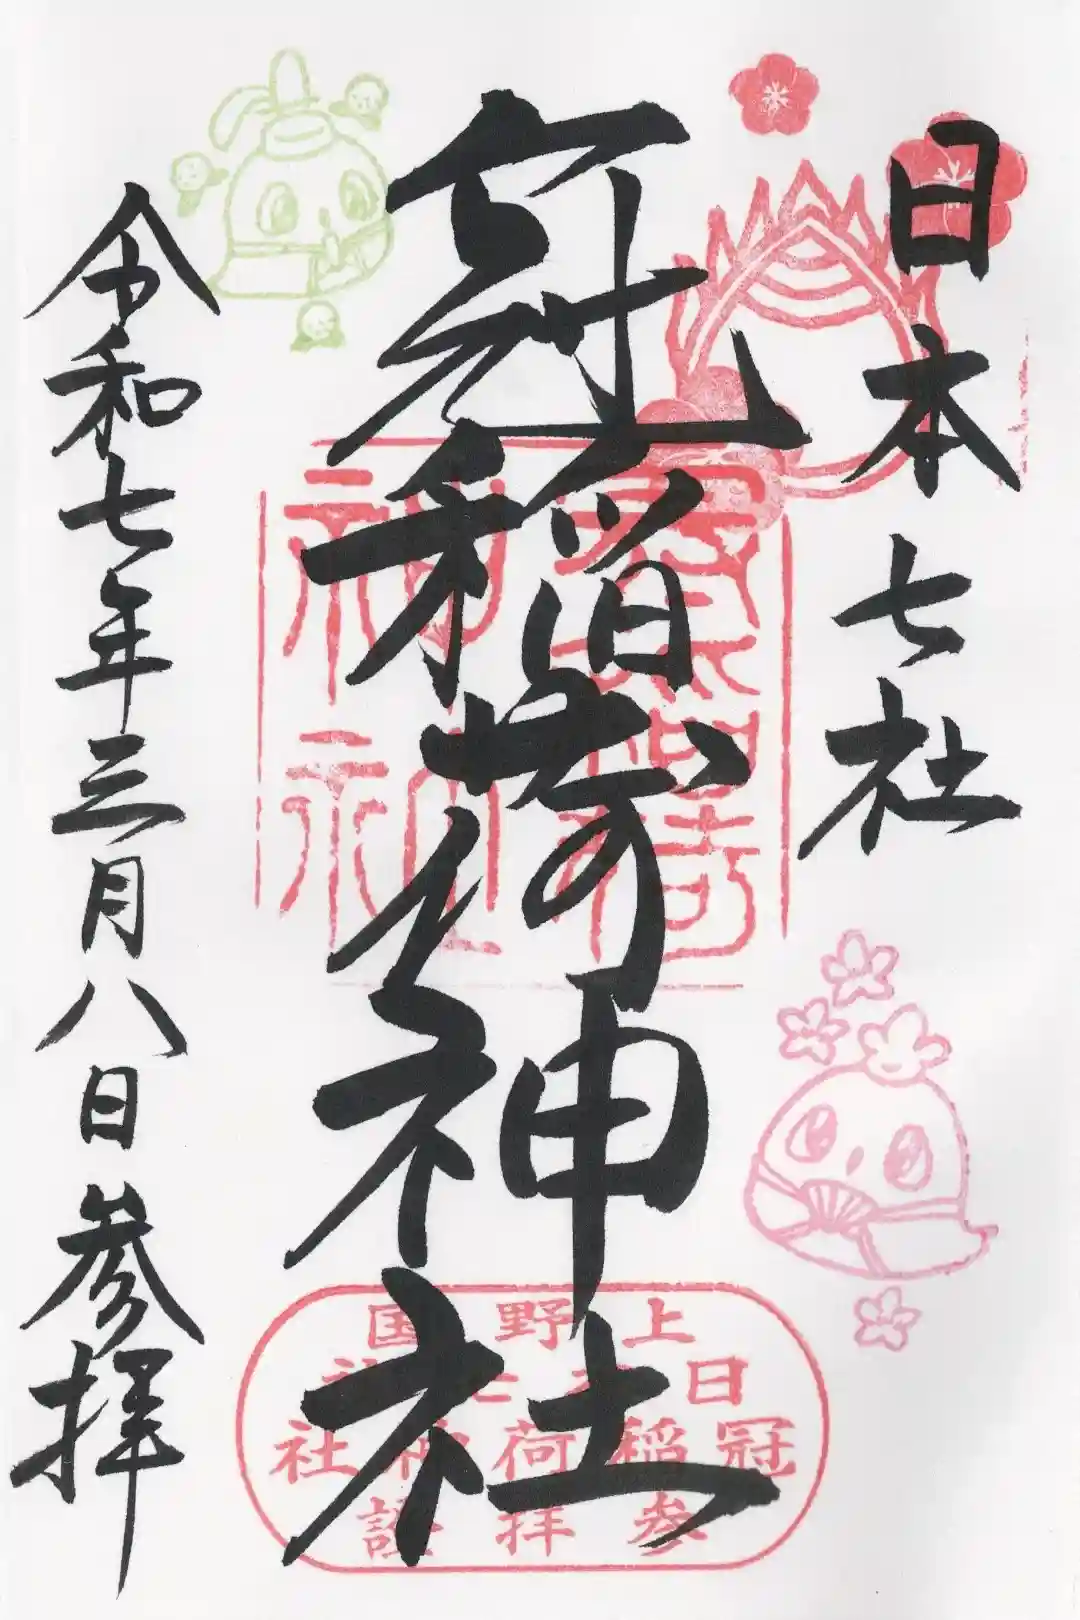 日本七社
冠稲荷神社
令和七年三月八日参拝
冠稲荷
神社
上野国
日本七社
冠稲荷神社
参拝証